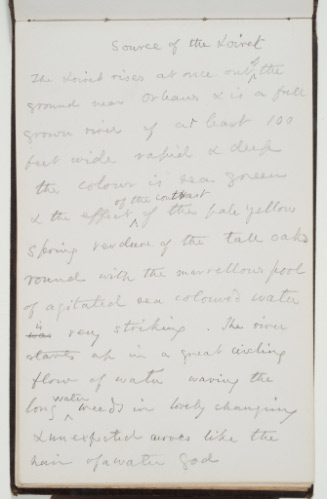 Source of the Loiret
The Loiret rises at once out of the
ground near Orleans & is a full
grown river of at least 100
feet wide rapid & deep
the colour is sea green
& the effect of the contrast of the pale yellow
spring verdure of the tall oaks
round with the marvellous pool
of agitated sea coloured water
is very striking. The river
starts up in a great circling
flow of water waving the
long water weeds in lovely changing
& unexpected curves like the
hair of a water god